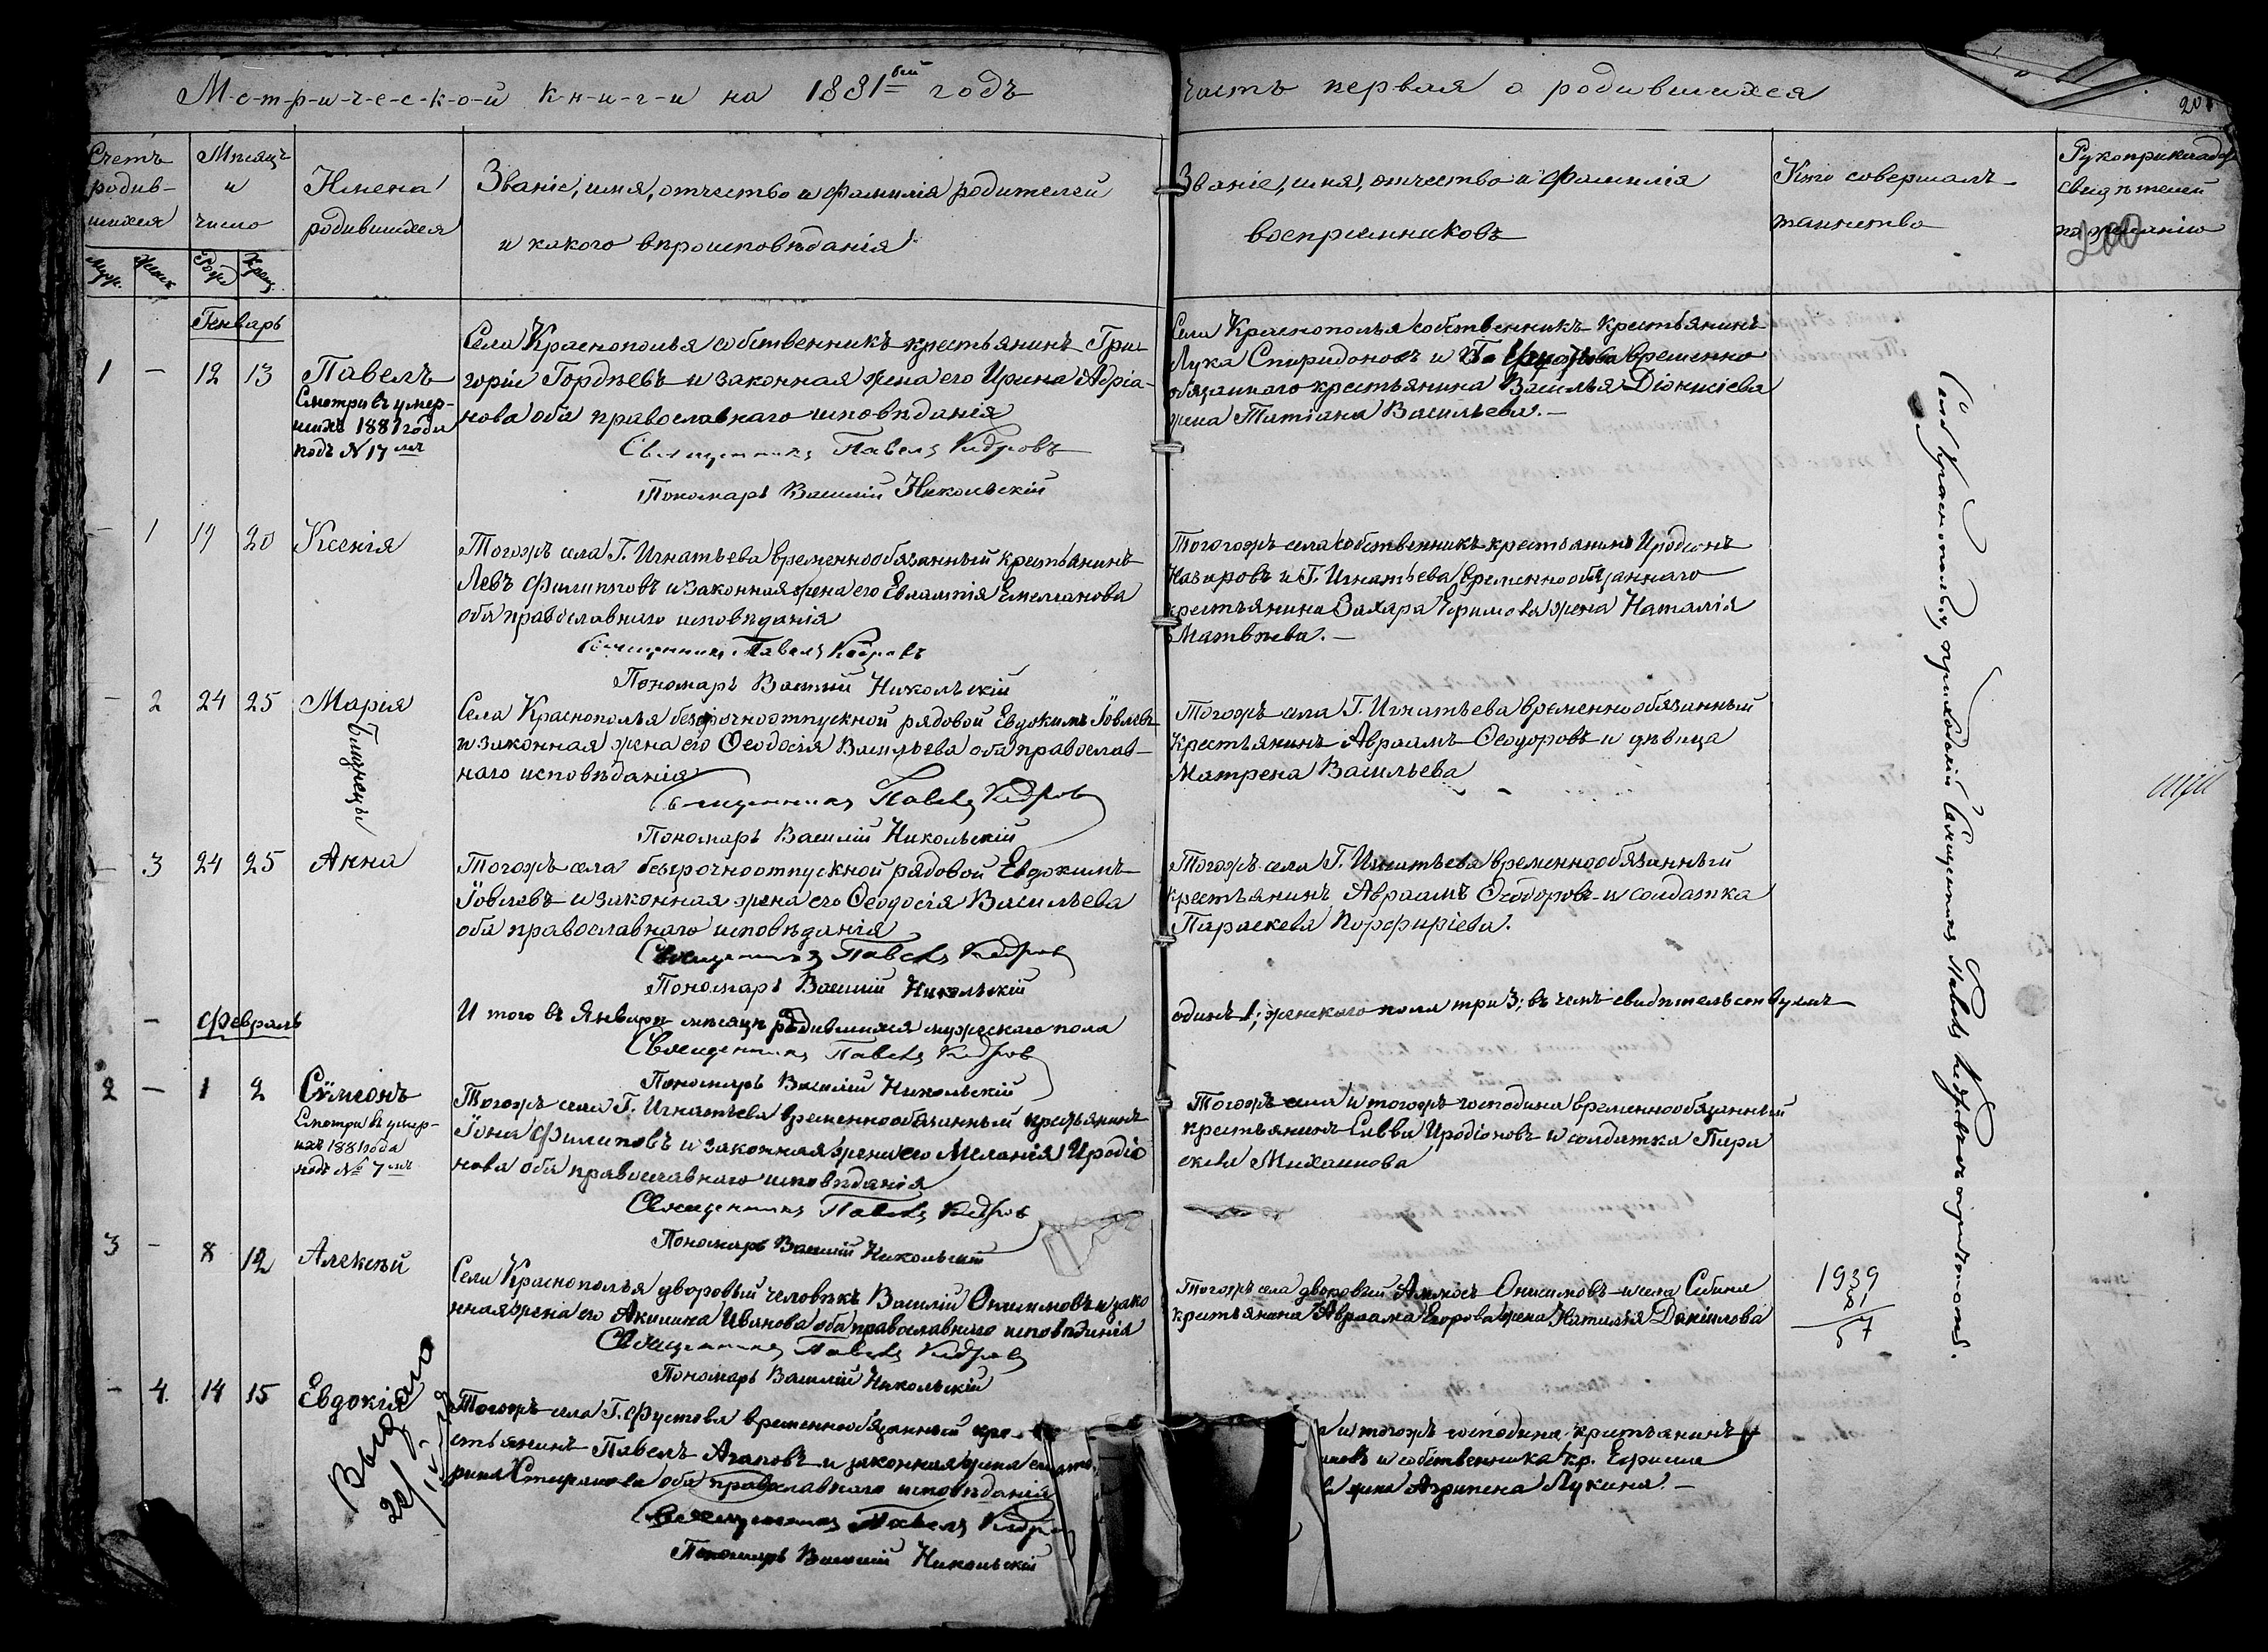 М-е-т-р-и-ч-е-с-к-о-й к-н-и-г-и на 1881бый годъ
часть первая о родившихся
20
Счетъ
родив-
шихся
Муж.
Женск
Мѣсяцъ
и
число
Рожд
Крещ.
Имена
родившихся
Званіе, имя, отчество и фамилія родителей
и какого вѣроисповѣданія
Званіе, имя, отчество и фамилія
воспріемниковъ
Кто совершалъ
таинство
Рукоприклад
свидѣтелей
по желанію
200
Генварь
1 – 12 13 Павелъ
Смотри въ умер-
шихъ 1881 года
подъ N 17мъ
Села Краснополья собственникъ крестьянинъ Гри-
горій Гордѣевъ и законная жена его Ирина Адріа-
нова оба православнаго исповѣданія
Священникъ Павелъ Кедровъ
Пономарь Василій Никольскій
Села Краснополья собственникъ крестьянинъ
Лука Спиридоновъ и временно
обязаннаго крестьянина Василья Діонисіева
жена Татіана Васильева. –
– 1 19 20 Ксенія
Тогожъ села Г. Игнатьева временнообязанный крестьянинъ
Левъ Филипповъ и законная жена его Евлампія Емельанова
оба православнаго исповѣданія
Священникъ Павелъ Кедровъ
Пономарь Василій Никольскій
Тогогожъ села собственникъ крестьянинъ Иродіонъ
Назаровъ и Г. Игнатьева временнообязаннаго
крестьянина Захара жена Наталія
Матвѣева. –
– 2 24 25 Марія
Близнецы
Села Краснополья безсрочноотпускной рядовой Евдокимъ Іовлевъ
и законная жена его Ѳеодосія Васильева оба православ-
наго исповѣданія
Священникъ Павелъ Кедровъ
Пономарь Василій Никольскій
Тогожъ села Г. Игнатьева временнообязанный
крестьянинъ Авраамъ Ѳеодоровъ и дѣвица
Матрена Васильева
– 3 24 25 Анна
Тогожъ села безсрочноотпускной рядовой Евдокимъ
Іовлевъ и законная жена его Ѳеодосія Васильева
оба православнаго исповѣданія
Священникъ Павелъ Кедровъ
Пономарь Василій Никольскій
Тогожъ села Г. Игнатьева временнообязанный
крестьянинъ Авраамъ Ѳеодоровъ и солдатка
Параскева Порфиріева.
И того въ Январѣ мѣсяцѣ родившихся мужескаго пола
одинъ 1; женскаго пола три 3; въ чемъ свидѣтельствуемъ
Священникъ Павелъ Кедровъ
Пономарь Василій Никольскій
Февраль
2 – 1 2 Сѷмеонъ
Смотри въ умер-
ихъ 1881 года
подъ № 7мъ
Тогожъ села Г. Игнатьева временнообязанный крестьянинъ
Іона Филиповъ и законная жена его Меланія Иродіо
нова оба православнаго исповѣданія
Священникъ Павелъ Кедровъ
Пономарь Василій Никольскій
Тогожъ села и тогожъ господина временнообязанный
крестьянинъ Савва Иродіоновъ и солдатка Пара
скева Михаилова
3 – 8 12 Алексѣй
Села Краснополья дворовый человѣкъ Василій Онисимовъ и зако
нная жена его Акилина Иванова оба православнаго исповѣданія
Священникъ Павелъ Кедровъ
Пономарь Василій Никольскій
Тогожъ села дворовый Амплій Онисимовъ и села
крестьянина Авраама Егорова жена Наталья Данилова
1939
81
57
– 4. 14 15 Евдокія
Выдано
Тогожъ села Г. Фустова временнообязанный кре-
стьянинъ Павелъ Агаповъ и законная жена его
оба православнаго исповѣданія
Священникъ Павелъ Кедровъ
Пономарь Василій Никольскій
и тогожъ господина крестьянинъ
новъ и собственника кр. Ефрема
жена Агрипена Лукина. –
Села Краснополья, приходскій Священникъ Павелъ Кедровъ съ причтомъ.